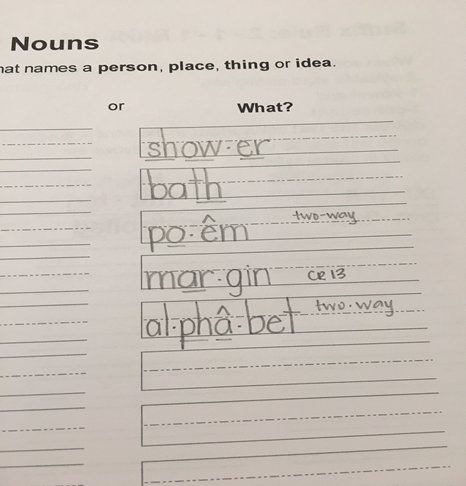 Nouns
hat names a person, place, thing or idea.
or What?
show·er
bath
po·êm two-way
mar·gin ce 13
al·phâ·bet two-way